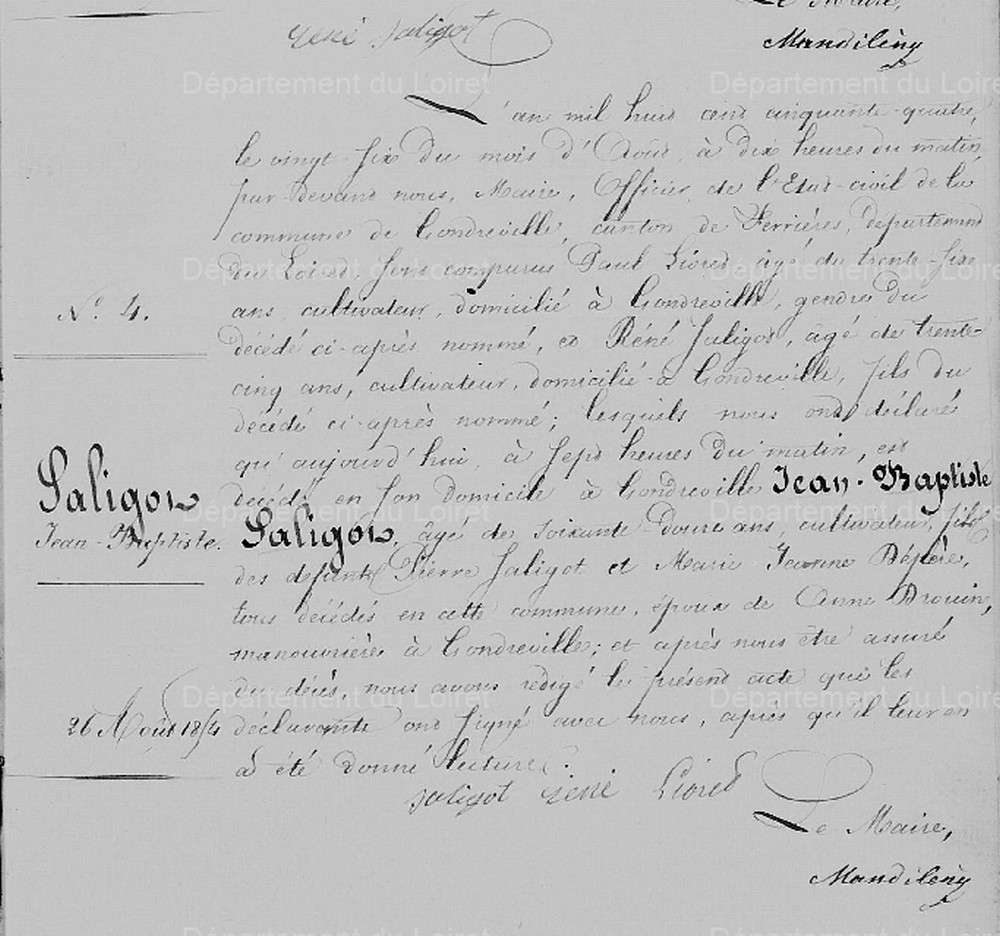 Le Maire,
René Saligot
Mandilény
L'an mil huit cent cinquante-quatre,
le vingt-six du mois d'Août, à dix heures du matin,
par-devant nous, Maire, Officier de l'Etat-civil de la
commune de Gondreville, canton de Ferrières, département
du Loiret, sont comparus Paul Lioret âgé de trente-six
Nº. 4.
ans, cultivateur, domicilié à Gondreville, gendre du
décédé ci-après nommé, et Réné Saligot, âgé de trente-
cinq ans, cultivateur, domicilié à Gondreville, fils du
décédé ci-après nommé; lesquels nous ont déclaré
qu'aujourd'hui, à sept heures du matin, est
Saligot
Jean-Baptiste.
décédé en son domicile à Gondreville Jean-Baptiste
Saligot, âgé de soixante-douze ans, cultivateur, fils
des défunts Pierre Saligot et Marie Jeanne Dépère,
tous décédés en cette commune, époux de Anne Drouin,
manouvrière à Gondreville; et après nous être assuré
du décès, nous avons rédigé le présent acte que les
26 Août 1854
déclarants ont signé avec nous, après qu'il leur en
a été donné lecture.
Saligot René Lioret
Le Maire,
Mandilény
Département du Loiret